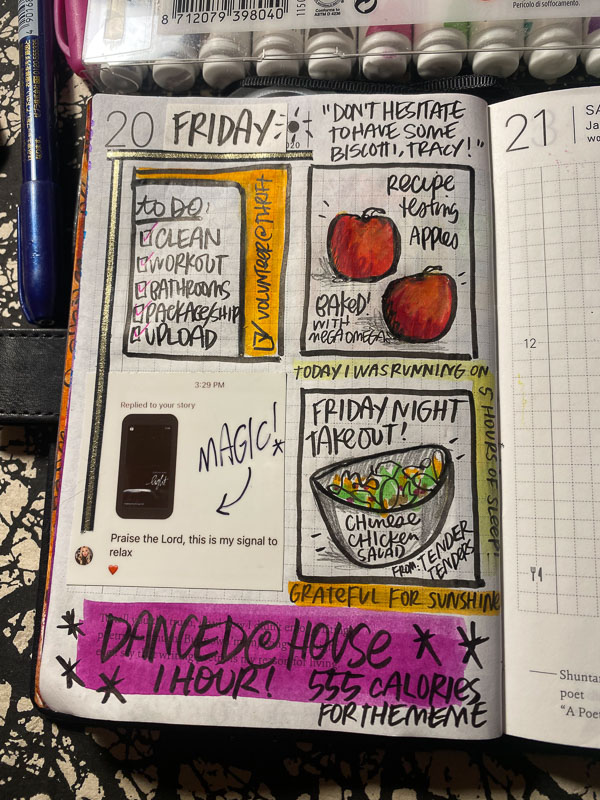 8 712079 398040
Conforme to
ASTM D 4236
Pericolo di soffocamento.
20 FRIDAY
020
"DON'T HESITATE
TO HAVE SOME
BISCOTTI, TRACY!"
TO DO:
CLEAN
WORKOUT
BATHROOMS
PACKAGE/SHIP
UPLOAD
VOLUNTEER@THRIFT
RECIPE
TESTING
APPLES
BAKED!
WITH
MEGA OMEGA
TODAY I WAS RUNNING ON
5 HOURS OF SLEEP!
3:29 PM
Replied to your story
light
MAGIC!*
Praise the Lord, this is my signal to
relax
❤️
FRIDAY NIGHT
TAKE OUT!
CHINESE
CHICKEN
SALAD
FROM: TENDER
TENDERS
GRATEFUL FOR SUNSHINE
DANCED@HOUSE
1 HOUR! 555 CALORIES
FOR THE MEME
21
SA
Ja
wo
12
Shuntar
poet
"A Poe